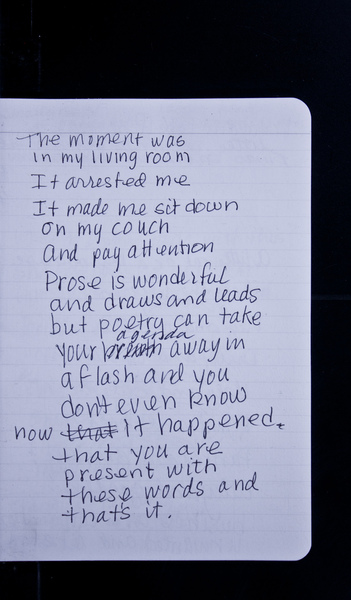 The moment was
in my living room
It arrested me
It made me sit down
on my couch
and pay attention
Prose is wonderful
and draws and leads
but poetry can take
agenda
your breath away in
a flash and you
don't even know
how that It happened.
that you are
present with
these words and
that's it.